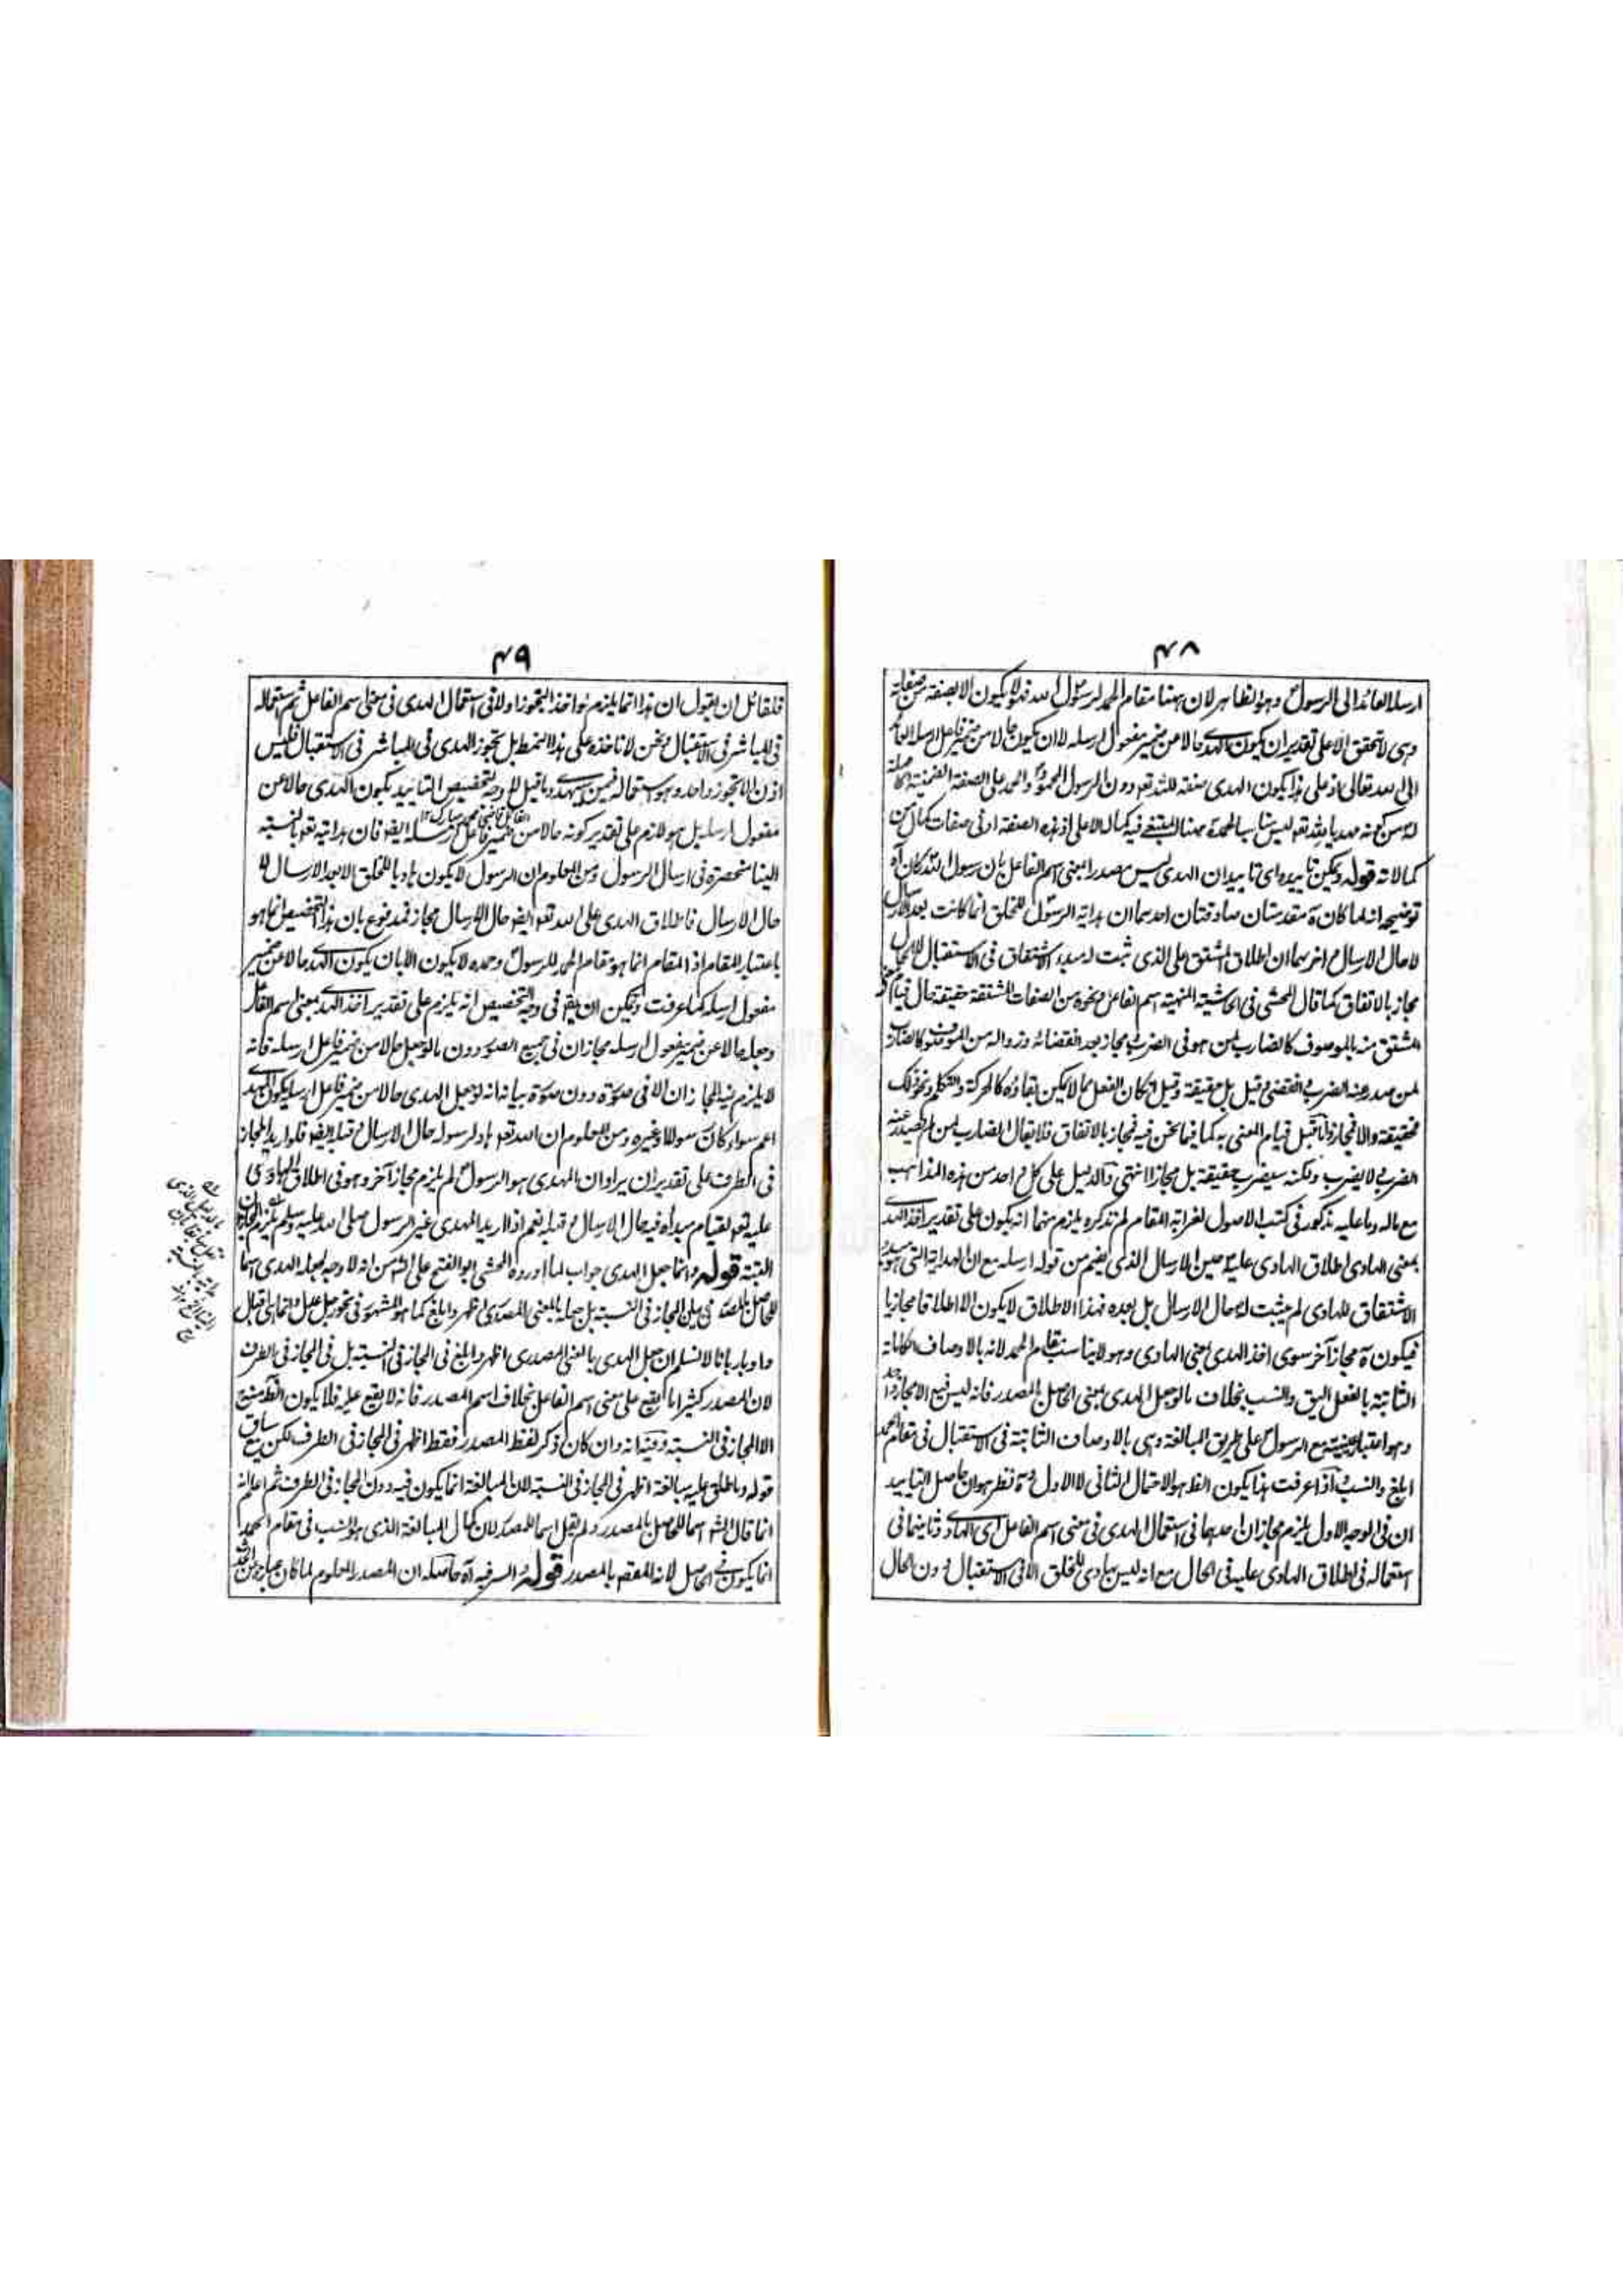 ۴۸
ارسله العائد الى الرسول وهو الظاهر لان ههنا مقام الحمد لرسول الله فلا يكون الا بصفة من صفاته
وهى لا تتحقق الا على تقدير ان يكون الهدى حالا من ضمير مفعول ارسله لا ان يكون حالا من ضمير فاعل ارسله العائد
الى الله تعالى اذ على هذا يكون الهدى صفة لله تعه دون الرسول المحمود والحمد على الصفة الضمنية
له من كونه مهديا بالله تعه ليس مناسب بالحمد ههنا المقتضے فيه كمال الاعلى اذ هذه الصفة ادنى صفات كمال من
كمالاته قوله ويمكن تاييده اى تاييد ان الهدى ليس مصدرا بمعنى اسم الفاعل بان رسول الله كان آه
توضيحه انه لما كان ههنا مقدمتان صادقتان احدهما ان هداية الرسول للخلق انما كانت بعد الارسال
لا حال الارسال واخرهما ان اطلاق المشتق على الذى ثبت له مبدء الاشتقاق فى الاستقبال لا الحال
مجاز بالاتفاق كما قال المحشى فى الحاشية المنهية اسم الفاعل ونحوه من الصفات المشتقة حقيقة حال قيام معنى
المشتق منه بالموصوف كالضارب لمن هو فى الضرب مجاز بعد انقضائه وزواله من الموصوف كالضارب
لمن صدر عنه الضرب وانقضى وقيل بل حقيقة وقيل ان كان الفعل مما لا يمكن بقاؤه كالحركة والتكلم ونحو ذلك
فحقيقة والا فمجاز واما قبل قيام المعنى به كما فيما نحن فيه فمجاز بالاتفاق فلا يقال الضارب لمن لم يصدر عنه
الضرب ولا يضرب ولكنه سيضرب حقيقة بل مجازا انتهى والدليل على كل واحد من هذه المذاهب
مع ماله وما عليه مذكور فى كتب الاصول لغرابة المقام لم نذكره يلزم منهما انه يكون على تقدير اخذ الهدى
بمعنى الهادى اطلاق الهادى عليه حين الارسال الذى يفهم من قوله ارسله مع ان الهداية التى هو مبدء
الاشتقاق للهادى لم يثبت له حال الارسال بل بعده فهذا الاطلاق لا يكون الا اطلاقا مجازيا
فيكون ههنا مجاز آخر سوى اخذ الهدى بمعنى الهادى وهو لا يناسب مقام الحمد لانه بالاوصاف الكمالية
الثابتة بالفعل اليق وانسب بخلاف ما لو جعل الهدى بمعنى الحاصل بالمصدر فانه ليس فيه الا مجاز واحد
وهو اعتبار عينيته مع الرسول على طريق المبالغة وهى بالاوصاف الثابتة فى الاستقبال فى مقام الحمد
ابلغ وانسب واذا عرفت هذا يكون الظ هو الاحتمال الثانى لا الاول وههنا نظر هو ان حاصل التاييد
ان فى الوجه الاول يلزم مجازان احدهما فى استعمال الهدى فى معنى اسم الفاعل اى الهادى وثانيهما فى
استعماله فى اطلاق الهادى عليه فى الحال مع انه ليس بهادى للخلق الا فى الاستقبال دون الحال
۴۹
فلقائل ان يقول ان هذا انما يلزم لو اخذ التجوز اولا فى استعمال الهدى فى معنى اسم الفاعل ثم استعماله
فى المباشر فى الاستقبال ونحن لا ناخذه على هذا النمط بل تجوز الهدى فى المباشر فى الاستقبال فليس
اذن الا تجوز واحد وهو استعماله فمن سيهدى وما قيل لا وجه لتخصيص التاييد بكون الهدى حالا من
القائل قاضى محمد مبارك ۱۲
مفعول ارسله بل هو لازم على تقدير كونه حالا من ضمير فاعل ارسله ايضا فان هدايته تعه بالنسبة
الينا منحصرة فى ارسال الرسول ومن المعلوم ان الرسول لا يكون هاديا للخلق الا بعد الارسال لا
حال الارسال فاطلاق الهدى على الله تعه ايضا حال الارسال مجاز فمدفوع بان هذا التخصيص انما هو
باعتبار المقام اذ المقام انما هو مقام الحمد للرسول وحمده لا يكون الا بان يكون الهدى حالا عن ضمير
مفعول ارسله كما عرفت ويمكن ان يقه فى وجه التخصيص انه يلزم على تقدير اخذ الهدى بمعنى اسم الفاعل
وجعله حالا عن ضمير مفعول ارسله مجازان فى جميع الصور دون ما لو جعل حالا من ضمير فاعل ارسله فانه
لا يلزم فيه المجازان الا فى صورة دون صورة بيانه انه لو جعل الهدى حالا من ضمير فاعل ارسله يكون الهدى
اعم سواء كان رسولا وغيره ومن المعلوم ان الله تعه هاد لرسوله حال الارسال وقبله ايضا فلو اريد المجاز
فى الطرف على تقدير ان يراد ان المهدى هو الرسول لم يلزم مجاز آخر وهو فى اطلاق الهادى
عليه تعه لقيام مبدأه فيه حال الارسال وقبله نعم اذا اريد المهدى غير الرسول صلى الله عليه وسلم يلزم المجازان
البتة قوله وانما جعل الهدى جواب لما اورده المحشى ابو الفتح على الش من انه لا وجه لجعله الهدى اسما
للحاصل بالمصدر فى جعل المجاز فى النسبة بل جعله بالمعنى المصدرى اظهر وابلغ كما هو المشهور فى نحو رجل عدل وانما هى اقبال
وادبار بانا لا نسلم ان جعل الهدى بالمعنى المصدرى اظهر وابلغ فى المجاز فى النسبة بل فى المجاز فى الطرف
لان المصدر كثيرا ما يقع على معنى اسم الفاعل بخلاف اسم المصدر فانه لا يقع عليه فلا يكون الظ منه
الا المجاز فى النسبة وفيه انه وان كان ذكر لفظ المصدر فقط اظهر فى المجاز فى الطرف لكن مع سياق
قوله واطلق عليه مبالغة اظهر فى المجاز فى النسبة لان المبالغة انما يكون فيه دون المجاز فى الطرف ثم اعلم انه
انما قال الش اسما للحاصل بالمصدر ولم يقل اسما للمصدر لان كمال المبالغة الذى هو انسب فى مقام الحمد
انما يكون فى الحاصل لانه المقصد بالمصدر قوله والسر فيه آه حاصله ان المصدر المعلوم لما كان عبارة عن